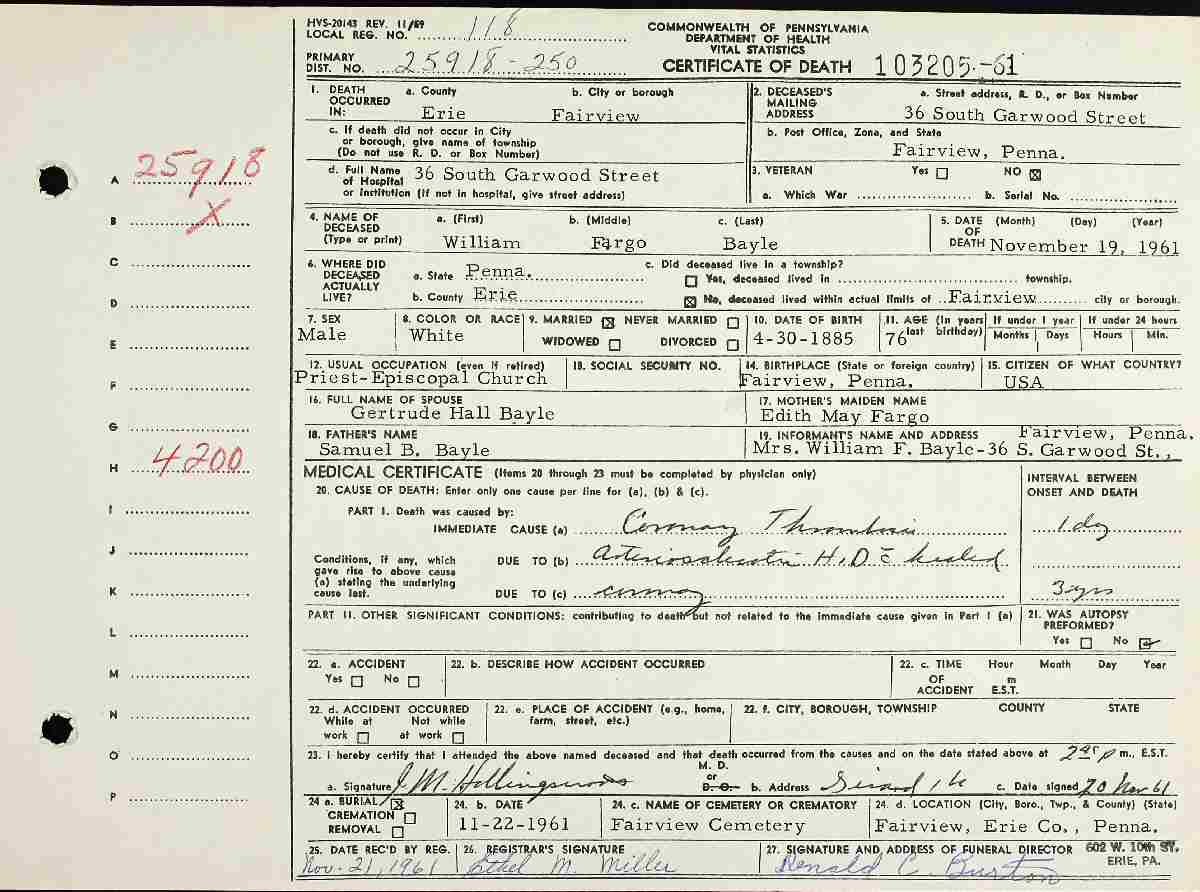 HVS-20143 REV. 11/59
LOCAL REG. NO. 118
COMMONWEALTH OF PENNSYLVANIA
DEPARTMENT OF HEALTH
VITAL STATISTICS
PRIMARY DIST. NO. 25918-250
CERTIFICATE OF DEATH 103205-61
1. DEATH OCCURRED IN: a. County Erie b. City or borough Fairview
2. DECEASED'S MAILING ADDRESS a. Street address, R. D., or Box Number 36 South Garwood Street
c. If death did not occur in City or borough, give name of township (Do not use R. D. or Box Number)
b. Post Office, Zone, and State Fairview, Penna.
d. Full Name of Hospital or Institution (If not in hospital, give street address) 36 South Garwood Street
3. VETERAN Yes NO ☒
a. Which War b. Serial No.
4. NAME OF DECEASED (Type or print) a. (First) William b. (Middle) Fargo c. (Last) Bayle
5. DATE OF DEATH (Month) (Day) (Year) November 19, 1961
6. WHERE DID DECEASED ACTUALLY LIVE? a. State Penna. b. County Erie
c. Did deceased live in a township?
Yes, deceased lived in township.
☒ No, deceased lived within actual limits of Fairview city or borough.
7. SEX Male
8. COLOR OR RACE White
9. MARRIED ☒ NEVER MARRIED
WIDOWED DIVORCED
10. DATE OF BIRTH 4-30-1885
11. AGE (In years last birthday) 76
If under 1 year Months Days
If under 24 hours Hours Min.
12. USUAL OCCUPATION (even if retired) Priest-Episcopal Church
13. SOCIAL SECURITY NO.
14. BIRTHPLACE (State or foreign country) Fairview, Penna.
15. CITIZEN OF WHAT COUNTRY? USA
16. FULL NAME OF SPOUSE Gertrude Hall Bayle
17. MOTHER'S MAIDEN NAME Edith May Fargo
18. FATHER'S NAME Samuel B. Bayle
19. INFORMANT'S NAME AND ADDRESS Fairview, Penna.
Mrs. William F. Bayle-36 S. Garwood St.,
MEDICAL CERTIFICATE (Items 20 through 23 must be completed by physician only)
INTERVAL BETWEEN ONSET AND DEATH
20. CAUSE OF DEATH: Enter only one cause per line for (a), (b) & (c).
PART I. Death was caused by:
IMMEDIATE CAUSE (a) Coronary Thrombosis 1 day
Conditions, if any, which gave rise to above cause (a) stating the underlying cause last.
DUE TO (b) Arteriosclerotic H.D. c̄ healed
DUE TO (c) coronary 3 yrs
PART II. OTHER SIGNIFICANT CONDITIONS: contributing to death but not related to the immediate cause given in Part I (a)
21. WAS AUTOPSY PREFORMED?
Yes No ☑
22. a. ACCIDENT
Yes No
22. b. DESCRIBE HOW ACCIDENT OCCURRED
22. c. TIME OF ACCIDENT Hour m E.S.T. Month Day Year
22. d. ACCIDENT OCCURRED
While at work Not while at work
22. e. PLACE OF ACCIDENT (e.g., home, farm, street, etc.)
22. f. CITY, BOROUGH, TOWNSHIP COUNTY STATE
23. I hereby certify that I attended the above named deceased and that death occurred from the causes and on the date stated above at p m., E.S.T.
a. Signature J. M. Hollingsworth M. D. or D. O. b. Address Girard c. Date signed 20 Nov 61
24 a. BURIAL ☒
CREMATION
REMOVAL
24. b. DATE 11-22-1961
24. c. NAME OF CEMETERY OR CREMATORY Fairview Cemetery
24. d. LOCATION (City, Boro., Twp., & County) (State) Fairview, Erie Co., Penna.
25. DATE REC'D BY REG. Nov. 21, 1961
26. REGISTRAR'S SIGNATURE Ethel M. Miller
27. SIGNATURE AND ADDRESS OF FUNERAL DIRECTOR Donald C. Burton
602 W. 10th ST.
ERIE, PA.
A 25918
B X
C
D
E
F
G
H 4200
I
J
K
L
M
N
O
P